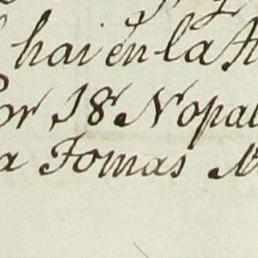 hai en la
or 18 Nopal
a Tomas